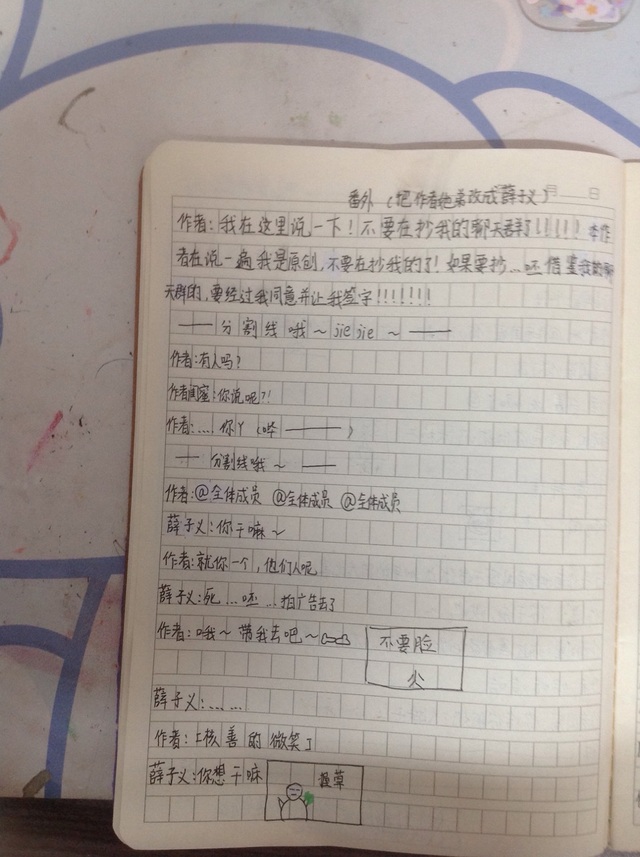 番外（把作者绝弟改成薛子义）月 日
作者：我在这里说一下！不要在抄我的聊天群了！！！！！本作
者在说一遍我是原创，不要在抄我的了！如果要抄…呸借鉴我的聊
天群的，要经过我同意并让我签字！！！！！！！
——分割线哦～jiejie～——
作者：有人吗？
作者闺蜜：你说呢？！
作者：….你丫（哔——）
——分割线哦～——
作者：@全体成员 @全体成员 @全体成员
薛子义：你干嘛～
作者：就你一个，他们人呢
薛子义：死…呸…拍广告去了
作者：哦～带我去吧～
不要脸
薛子义：……
作者：「核善的微笑」
薛子义：你想干嘛
握草